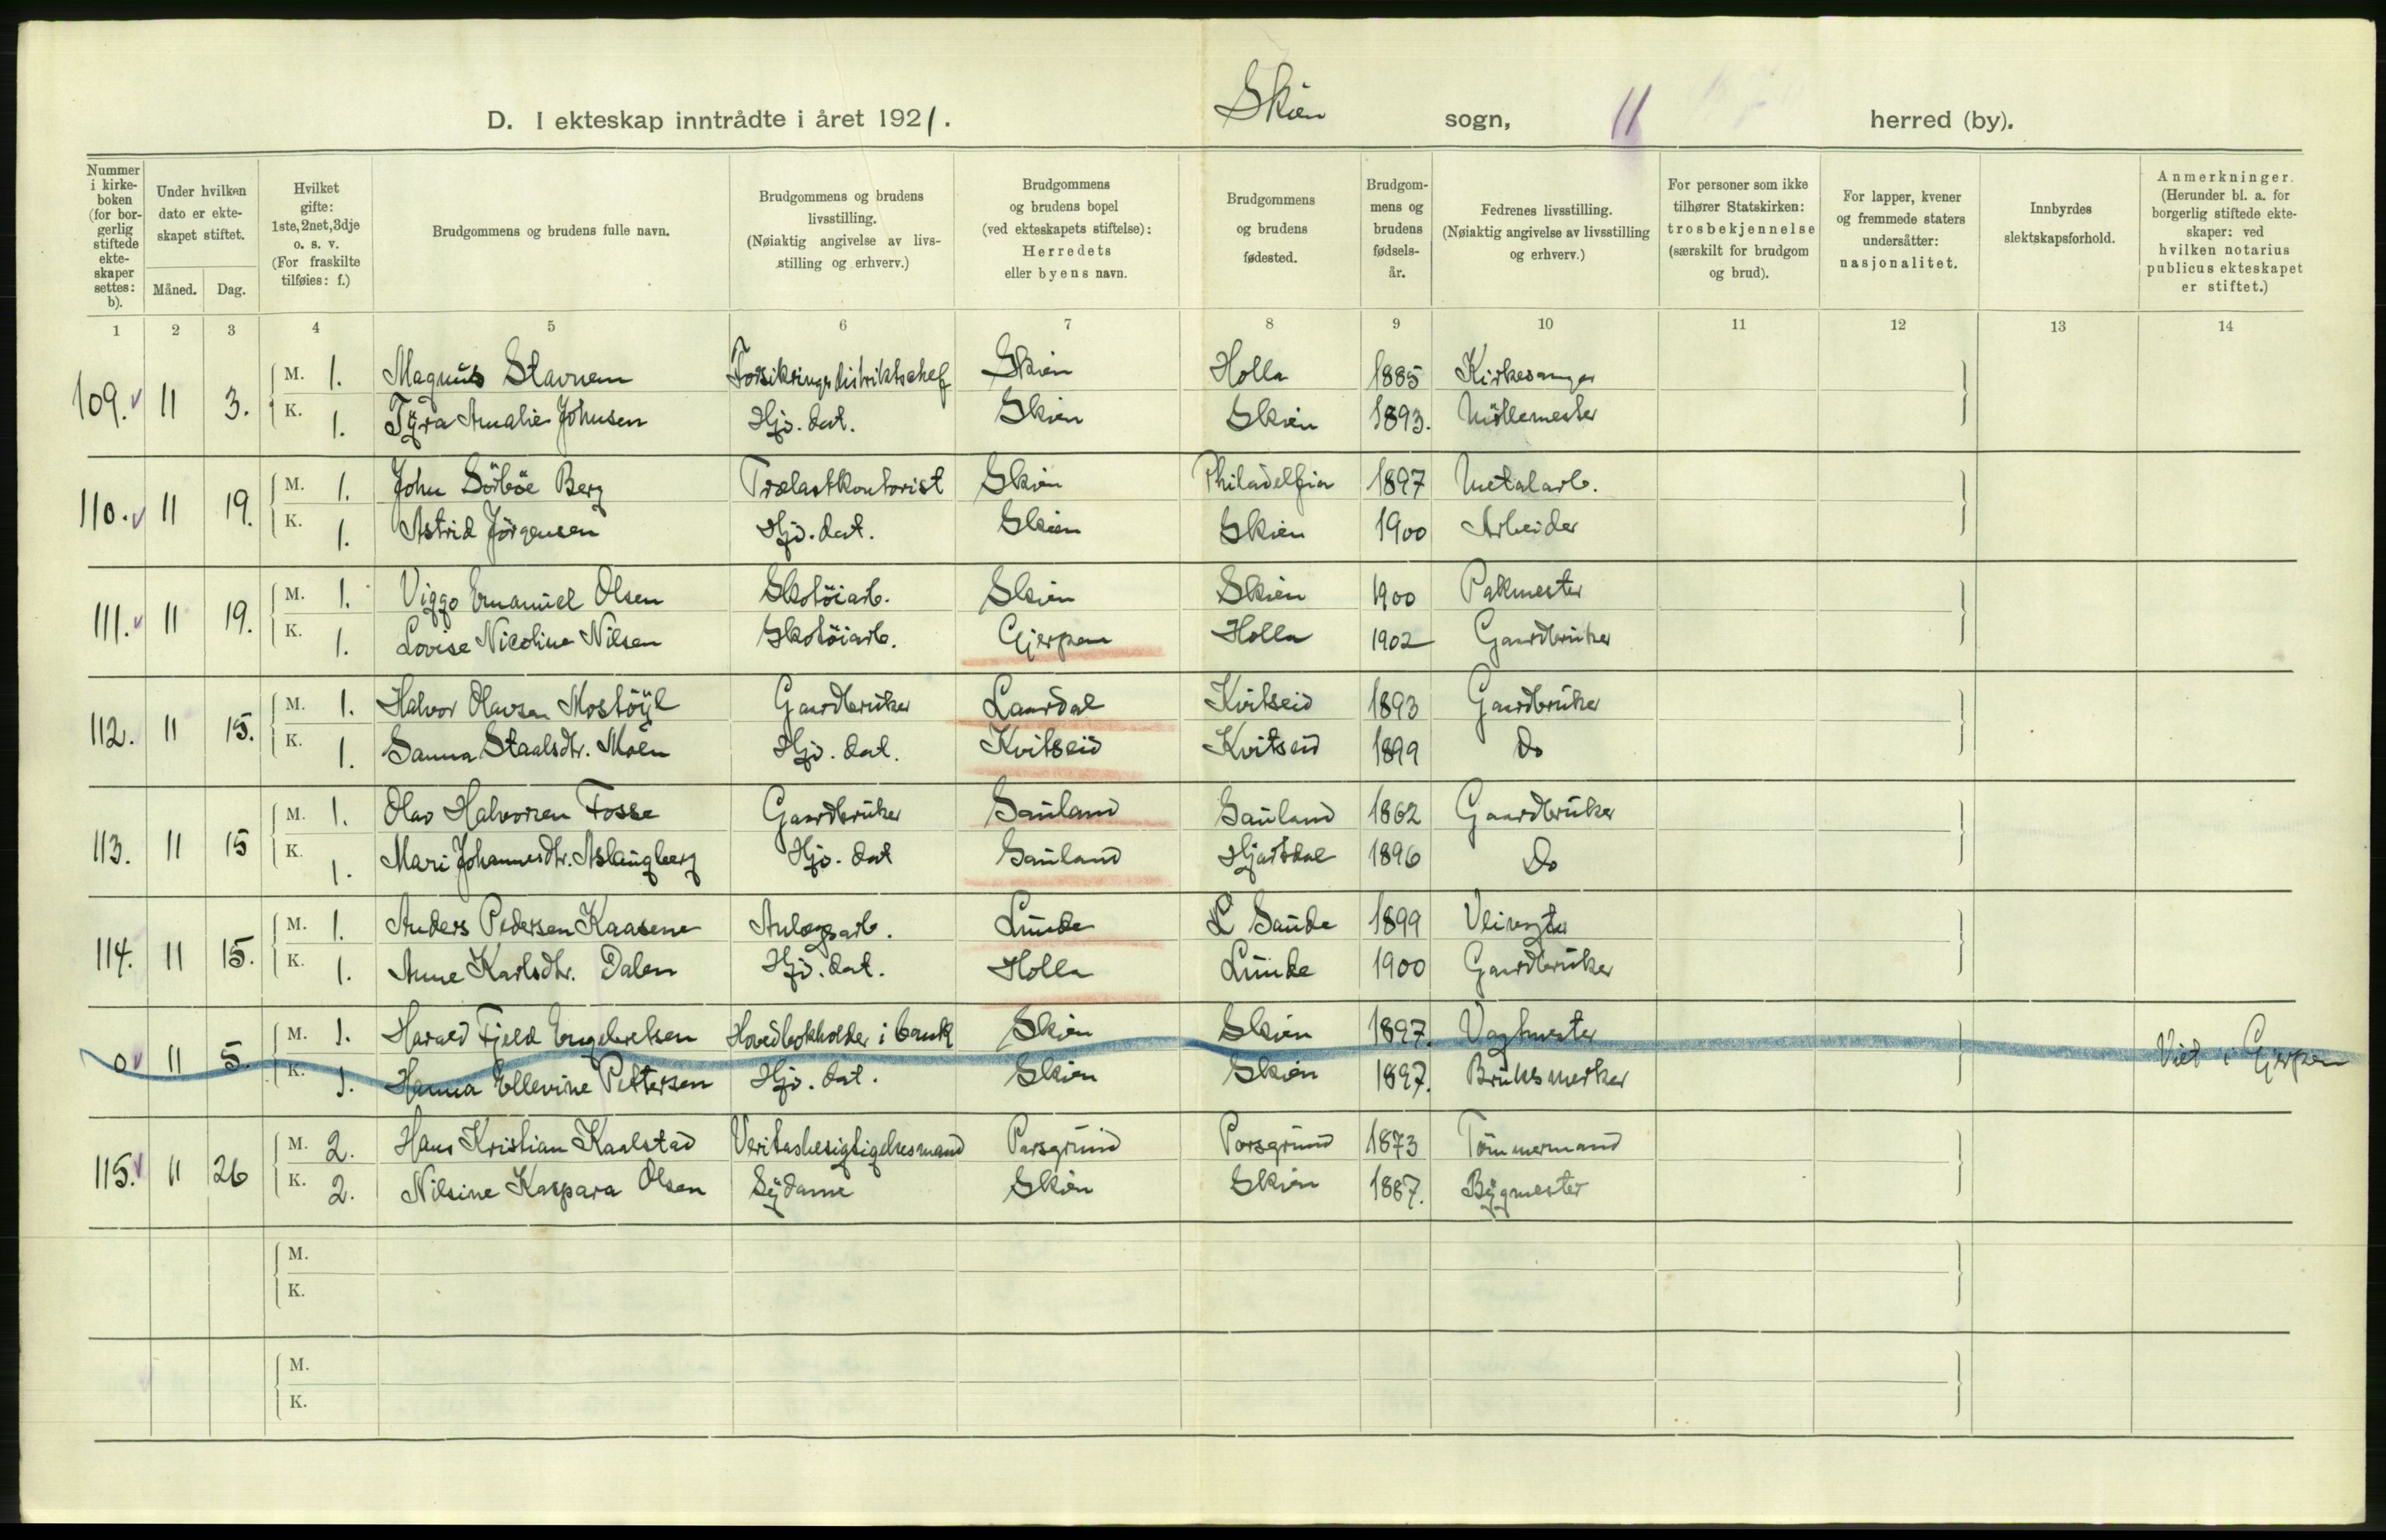 D. I ekteskap inntrådte i året 1921. Skien sogn, 11 herred (by).
Nummer i kirke-boken (for bor-gerlig stiftede ekte-skaper settes: b).
Under hvilken dato er ekte-skapet stiftet.
Måned. Dag.
Hvilket gifte: 1ste, 2net, 3dje o. s. v. (For fraskilte tilføies: f.)
Brudgommens og brudens fulle navn.
Brudgommens og brudens livsstilling. (Nøiaktig angivelse av livs-stilling og erhverv.)
Brudgommens og brudens bopel (ved ekteskapets stiftelse): Herredets eller byens navn.
Brudgommens og brudens fødested.
Brudgom-mens og brudens fødsels-år.
Fedrenes livsstilling. (Nøiaktig angivelse av livsstilling og erhverv.)
For personer som ikke tilhører Statskirken: trosbekjennelse (særskilt for brudgom og brud).
For lapper, kvener og fremmede staters undersåtter: nasjonalitet.
Innbyrdes slektskapsforhold.
Anmerkninger. (Herunder bl. a. for borgerlig stiftede ekte-skaper: ved hvilken notarius publicus ekteskapet er stiftet.)
1 2 3 4 5 6 7 8 9 10 11 12 13 14
109. 11 3. M. 1. Magnus Stavnem Forsikringsdistriktschef Skien Holla 1885 Kirkesanger
K. 1. Tÿra Amalie Johnsen Hjv. dat. Skien Skien 1893. Möllemester
110. 11 19. M. 1. John Sörböe Berg Trælastkontorist Skien Philadelfia 1897 Metalarb.
K. 1. Astrid Jörgensen Hjv. dat. Skien Skien 1900 Arbeider
111. 11 19. M. 1. Viggo Emanuel Olsen Skotöiarb. Skien Skien 1900 Pakmester
K. 1. Lovise Nicoline Nilsen Skotöiarb. Gjerpen Holla 1902 Gaardbruker
112. 11 15. M. 1. Halvor Olavsen Mostöÿl Gaardbruker Laardal Kvitseid 1893 Gaardbruker
K. 1. Sanna Staalsdtr. Moen Hjv. dat. Kvitseid Kvitseid 1899 Do
113. 11 15 M. 1. Olav Halvorsen Fosse Gaardbruker Sauland Sauland 1862 Gaardbruker
K. 1. Mari Johannesdtr. Aslaugberg Hjv. dat Sauland Hjartdal 1896 Do
114. 11 15. M. 1. Anders Pedersen Kaasene Anlægsarb. Lunde L Saude 1899 Veivogter
K. 1. Anne Karlsdtr. Dalen Hjv. dat. Holla Lunde 1900 Gaardbruker
0 11 5. M. 1. Harald Fjeld Engebretsen Hovedbokholder i bank Skien Skien 1897. Vagtmester Viet i Gjerpen
K. 1. Hanna Ellevine Pettersen Hjv. dat. Skien Skien 1897. Bruksmerker
115. 11 26 M. 2. Hans Kristian Kaalstad Veritasbesigtigelsesmand Porsgrund Porsgrund 1873 Tömmermand
K. 2. Nilsine Kaspara Olsen Sÿdame Skien Skien 1887. Bÿgmester
M.
K.
M.
K.